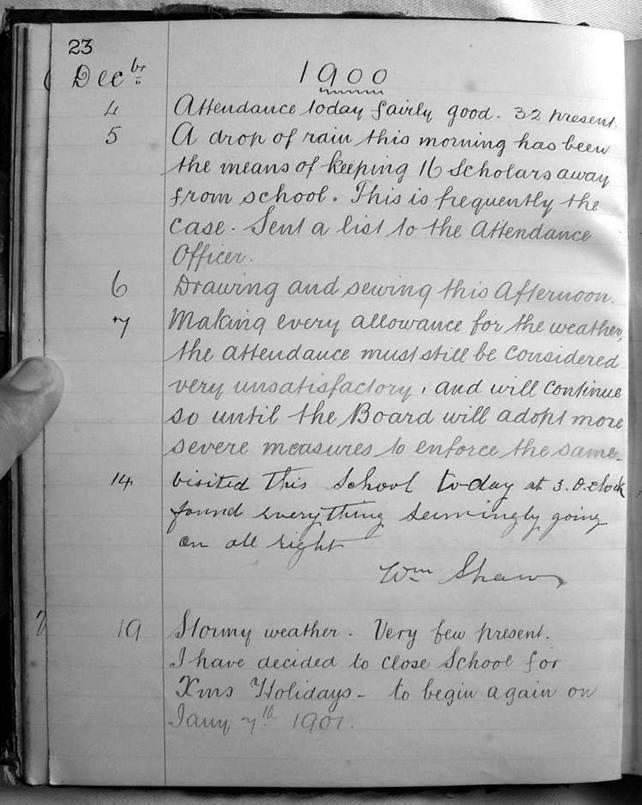 23
Decbr 1900
4 Attendance today fairly good. 32 present.
5 A drop of rain this morning has been
the means of keeping 16 Scholars away
from school. This is frequently the
case. Sent a list to the Attendance
Officer.
6 Drawing and sewing this Afternoon.
7 Making every allowance for the weather,
the attendance must still be considered
very unsatisfactory, and will continue
so until the Board will adopt more
severe measures to enforce the same.
14 visited this School to-day at 3.O.clock
found everything seemingly going
on all right
Wm Shaw
19 Stormy weather. Very few present.
I have decided to close School for
Xms Holidays - to begin again on
Jany 7th 1901.